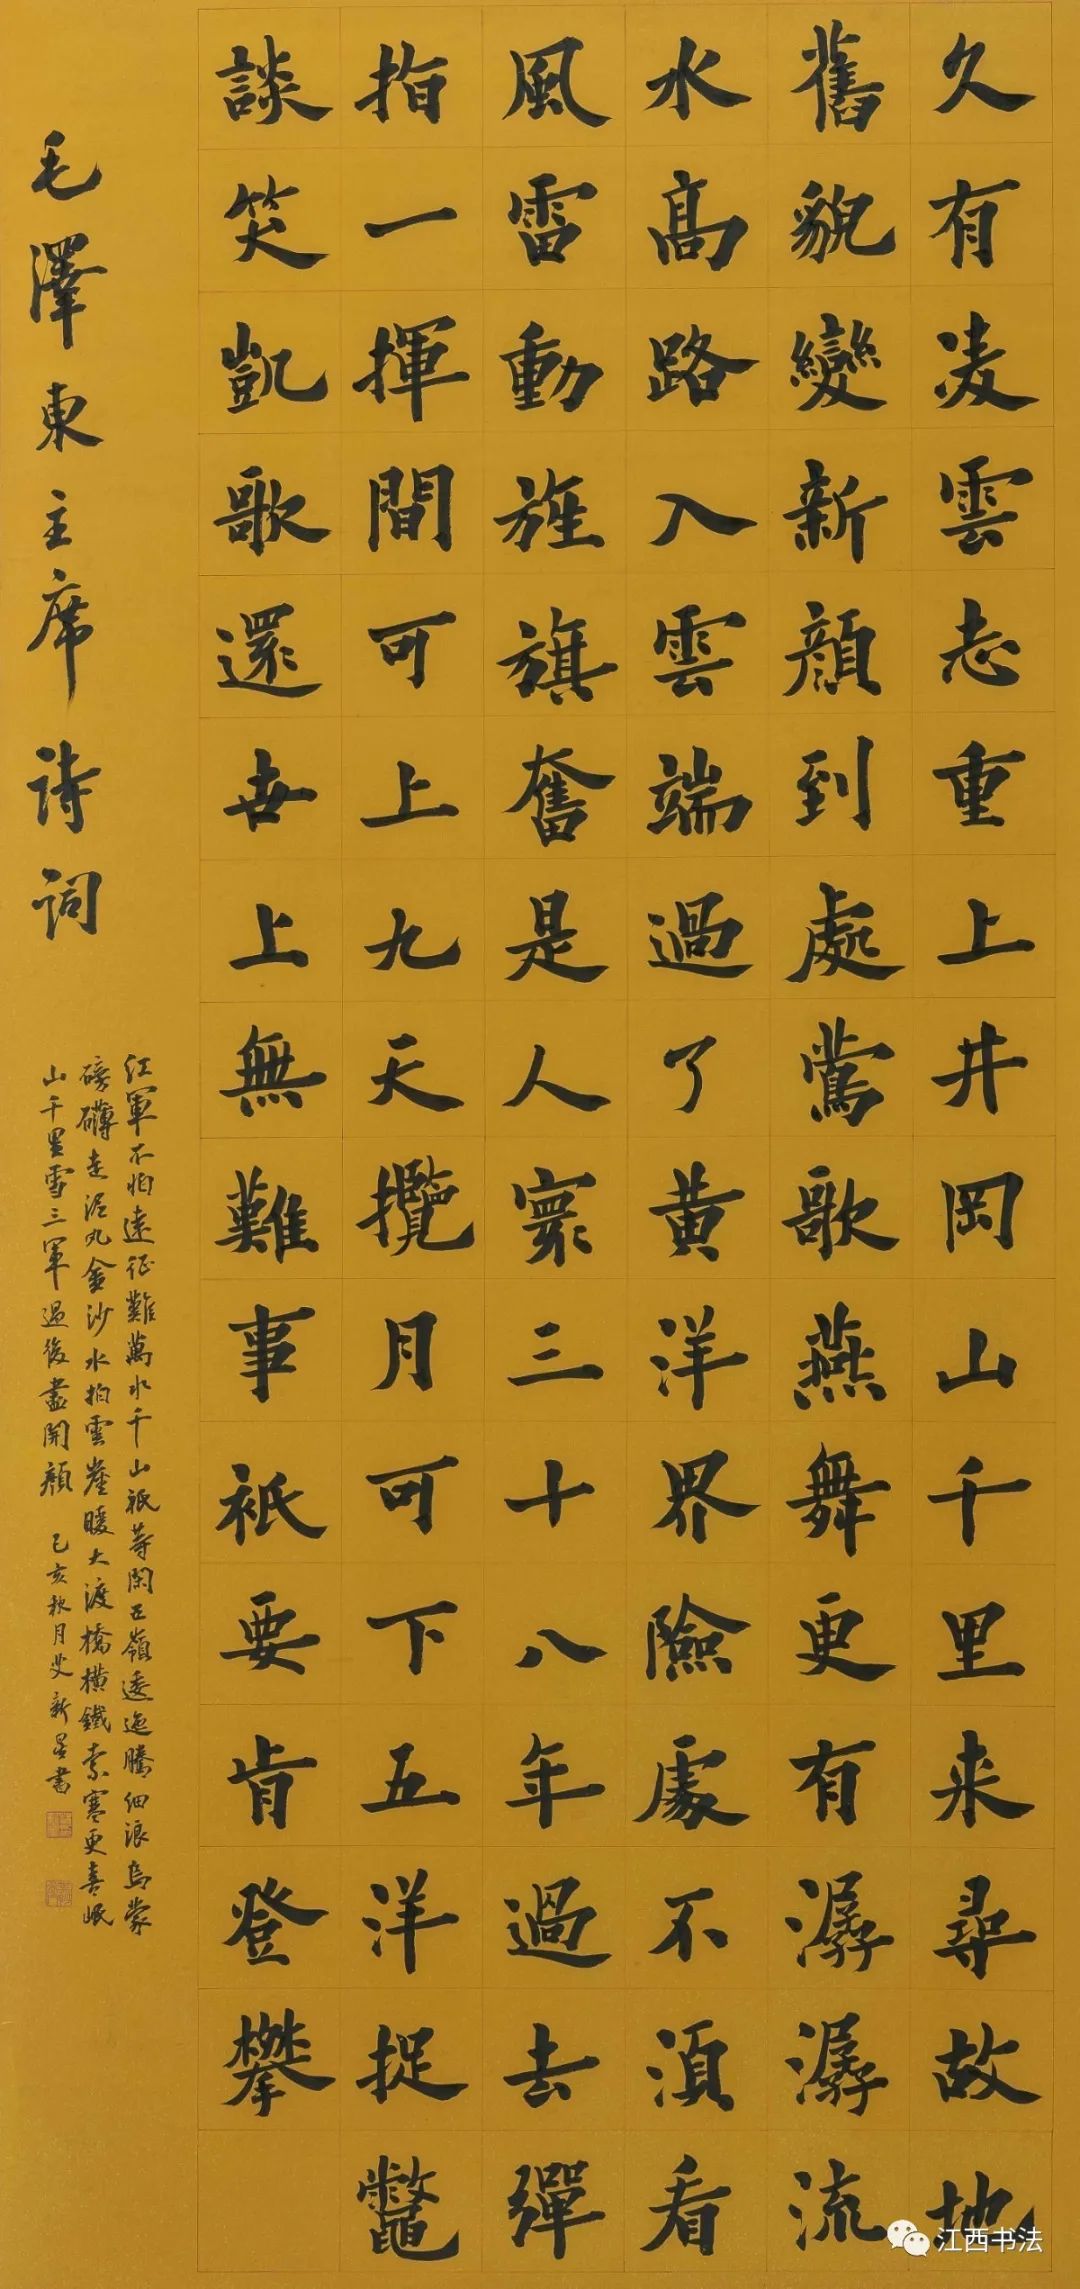 久有凌雲志重上井岡山千里来尋故地
舊貌變新顏到處鶯歌燕舞更有潺潺流
水髙路入雲端過了黄洋界險處不須看
風雷動旌旗奮是人寰三十八年過去彈
指一揮間可上九天攬月可下五洋捉鼈
談笑凱歌還世上無難事祇要肯登攀
毛澤東主席詩詞
紅軍不怕遠征難萬水千山祇等閑五嶺逶迤騰細浪烏蒙
磅礴走泥丸金沙水拍雲崖暖大渡橋橫鐵索寒更喜岷
山千里雪三軍過後盡開顏 己亥秋月艾新星書
江西书法